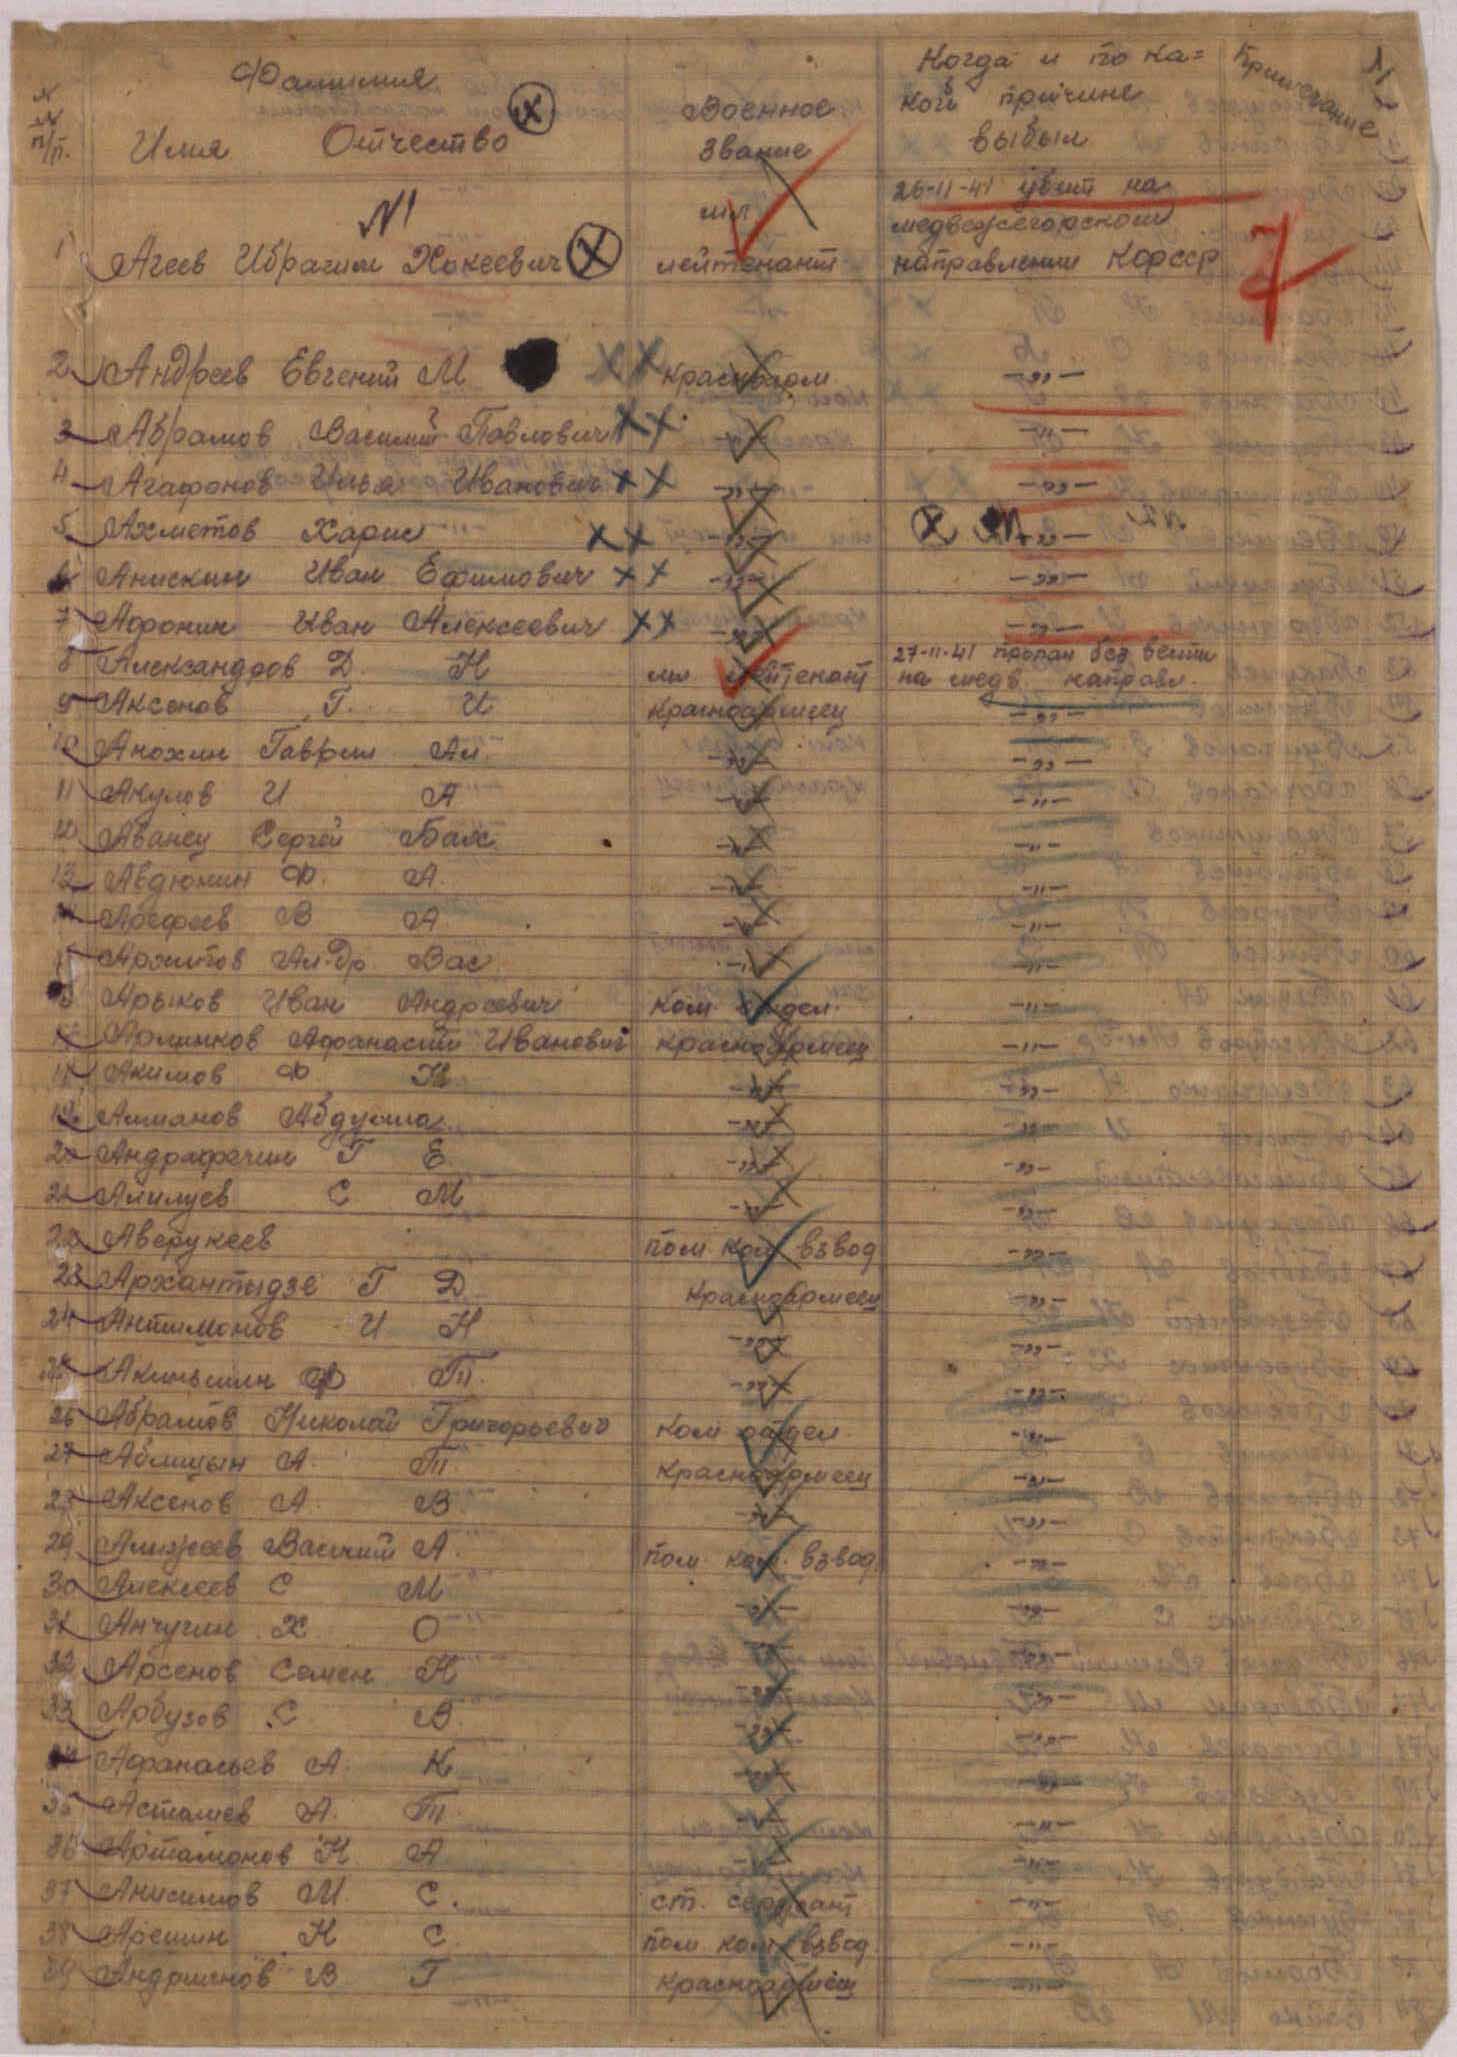 №№ п/п.
Фамилия
Имя Отчество
Военное звание
Когда и по какой причине выбыл
Примечание
№1
1 Агеев Ибрагим Хакеевич мл. лейтенант 26-11-41 убит на медвежегорском направлении КФССР 7
2 Андреев Евгений М ХХ Красноарм. -"-
3 Абрамов Василий Павлович ХХ -"- -"-
4 Агафонов Илья Иванович ХХ -"- -"-
5 Ахметов Харис ХХ -"- -"-
6 Анискин Иван Ефимович ХХ -"- -"-
7 Афонин Иван Алексеевич ХХ -"- -"-
8 Александров Д. Н мл. лейтенант 27-11-41 пропал без вести на медв. направл.
9 Аксенов Г. И Красноармеец -"-
10 Анохин Гаврил Ал. -"- -"-
11 Акулов И А -"- -"-
12 Аванец Сергей -"- -"-
13 Авдюнин Ф. А. -"- -"-
14 Арефьев В А -"- -"-
15 Архипов Ал-др Вас -"- -"-
Арыков Иван Андреевич ком. отдел. -"-
Афанасий Иванович красноармеец -"-
Акимов Ф Н. -"- -"-
19 Алманов Абдулла -"- -"-
20 Г Е -"- -"-
21 Алилуев С М -"- -"-
22 Аверукеев пом. ком. взвод -"-
23 Г Д Красноармеец -"-
24 Антимонов И Н -"- -"-
25 Акиньшин Ф Т. -"- -"-
26 Абрамов Николай Григорьевич Ком отдел. -"-
27 А. Т. Красноармеец -"-
28 Аксенов А. В -"- -"-
29 Василий А. пом. ком. взвод. -"-
30 Алексеев С М -"- -"-
31 Анчугин Х О -"- -"-
32 Арсенов Семен Н -"- -"-
33 Арбузов С В. -"- -"-
34 Афанасьев А. К -"- -"-
35 А. Т. -"- -"-
36 Артамонов Н А -"- -"-
37 Анисимов М. С. ст. сержант -"-
38 Арешин Н С пом. ком. взвод -"-
39 В Г Красноармеец -"-